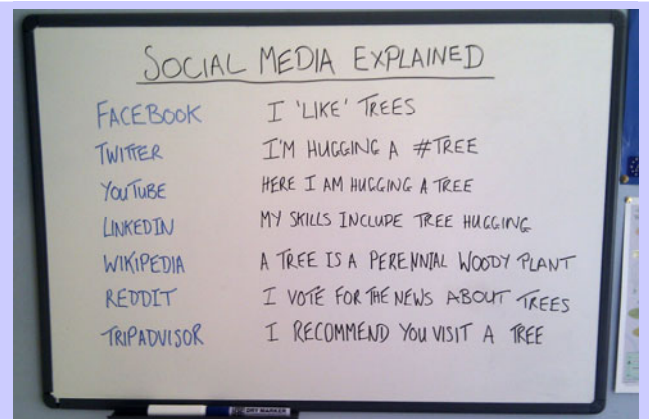 SOCIAL MEDIA EXPLAINED
FACEBOOK I 'LIKE' TREES
TWITTER I'M HUGGING A #TREE
YOUTUBE HERE I AM HUGGING A TREE
LINKEDIN MY SKILLS INCLUDE TREE HUGGING
WIKIPEDIA A TREE IS A PERENNIAL WOODY PLANT
REDDIT I VOTE FOR THE NEWS ABOUT TREES
TRIPADVISOR I RECOMMEND YOU VISIT A TREE
DRY MARKER